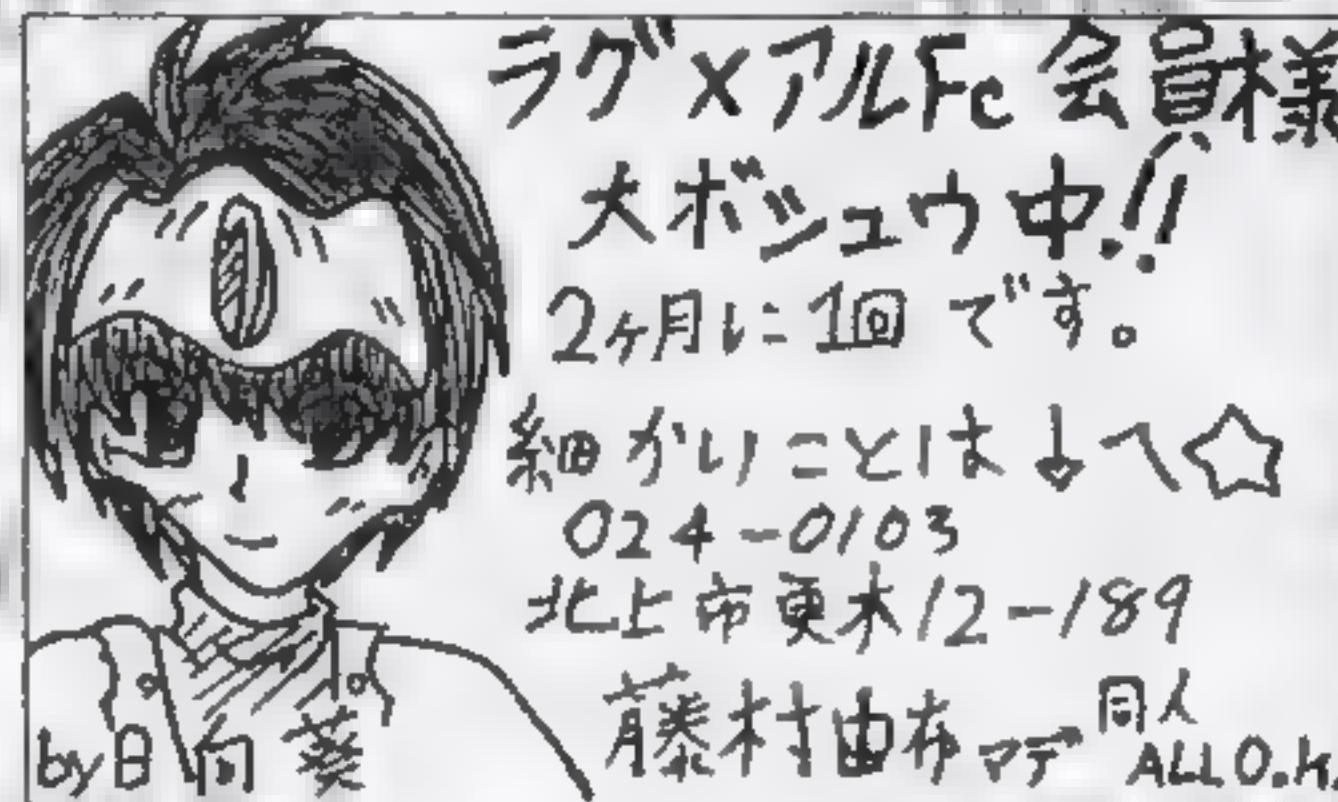 ラグ×アルFc 会員様
大ボシュウ中!!
2ヶ月に1回です。
細かいことは↓へ☆
024-0103
北上市更木12-189
藤村由布マデ 同人 ALL O.K.
by日向葵